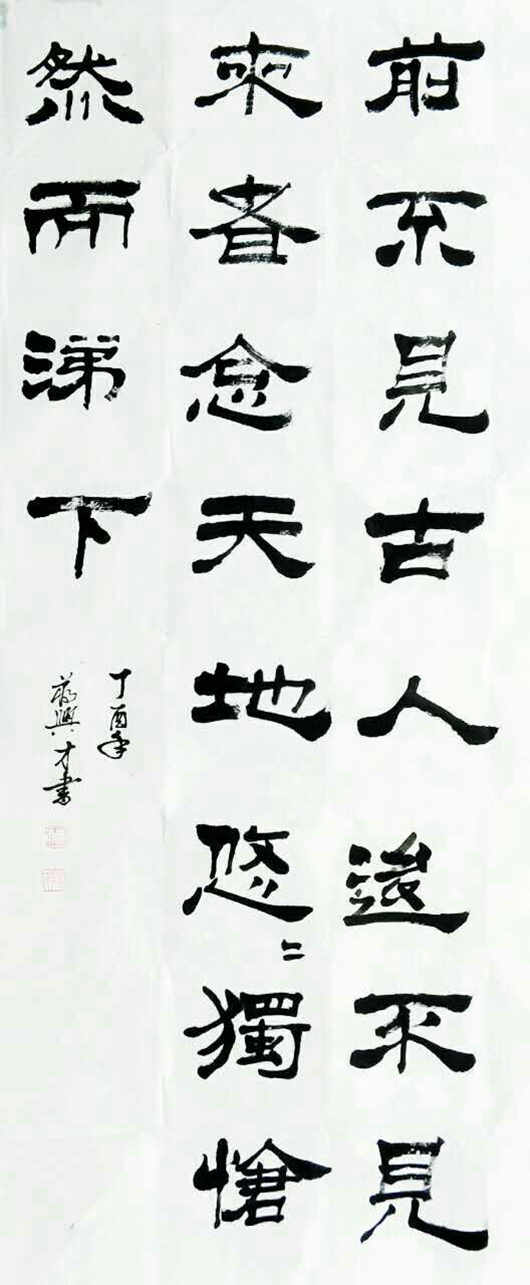 前不見古人後不見
來者念天地悠〻獨愴
然而涕下
丁酉年
興才書